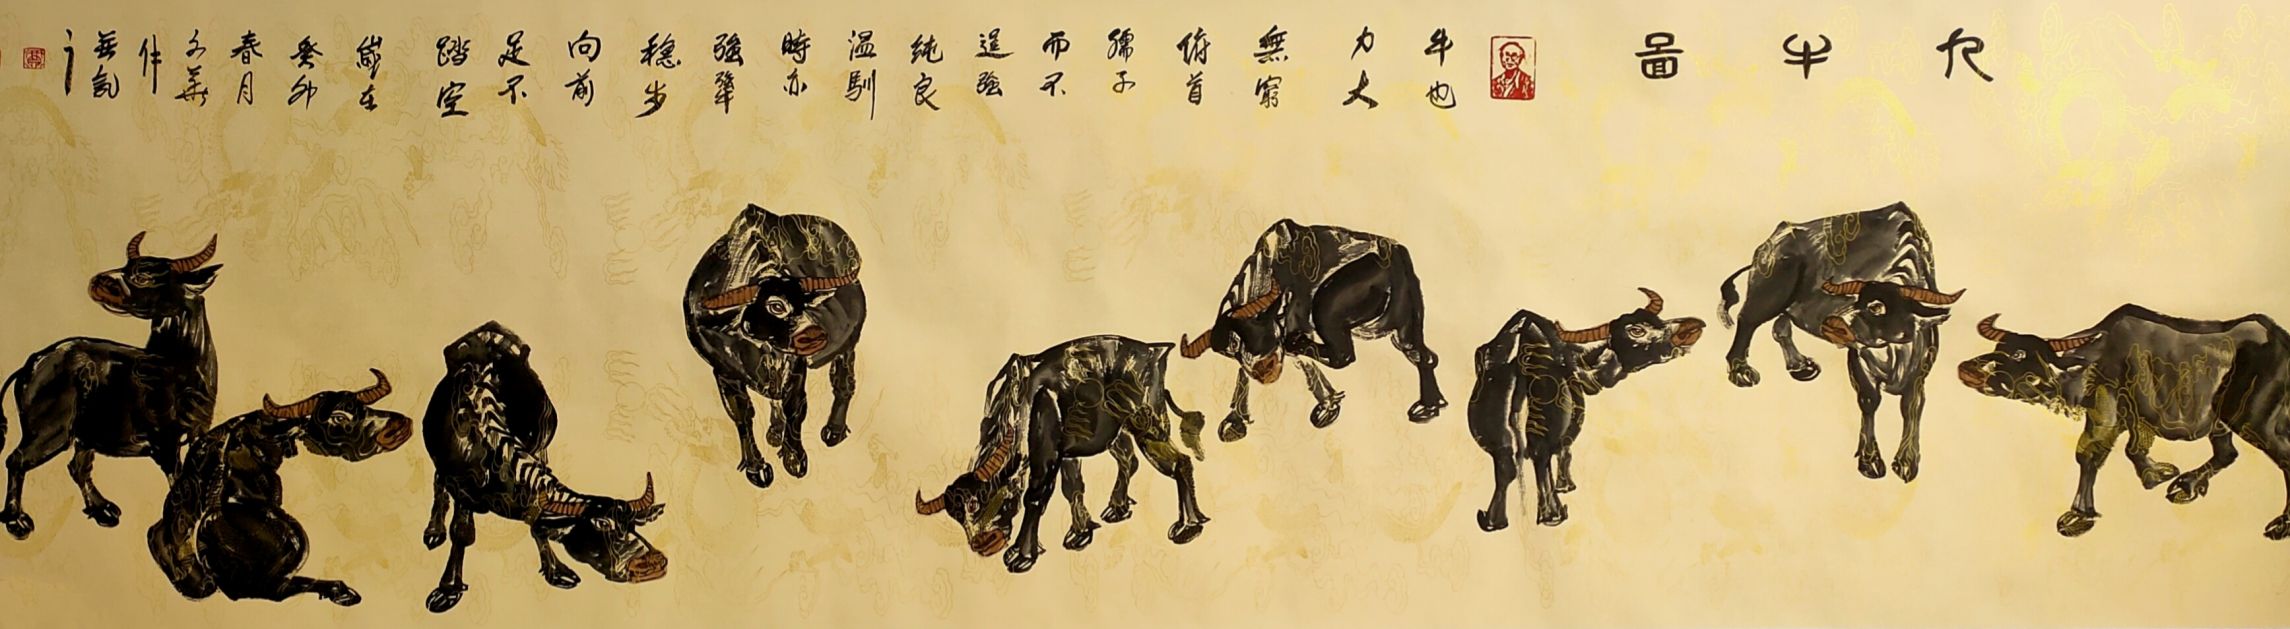 九牛啚
牛也
力大
無窮
俯首
孺子
而不
逞強
純良
温馴
時亦
強犟
穩步
向前
足不
踏空
歲在
癸卯
春月